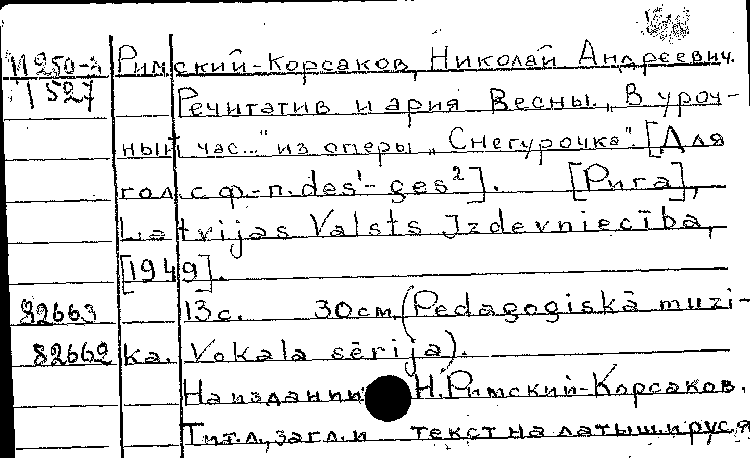 М 250-3 Римский-Корсаков, Николай Андреевич.
1 527 Речитатив и ария Весны „В уроч-
ный час..." из оперы „Снегурочка". [Для
гол. с ф.-п. des¹- ges²]. [Рига],
Latvijas Valsts Izdevniecība,
[1949].
82663 13с. 30см. (Pedagoģiskā muzi-
82662 ka. Vokala sērija).
На издании: Н. Римский-Корсаков.
Тит.л., загл. и текст на латыш. и рус.я